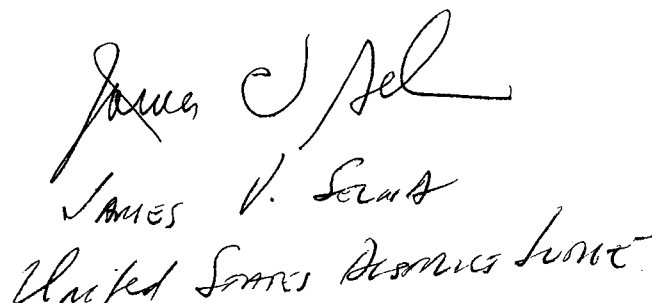 James V Sel
JAMES V. SELNA
United STATES DISTRICT JUDGE